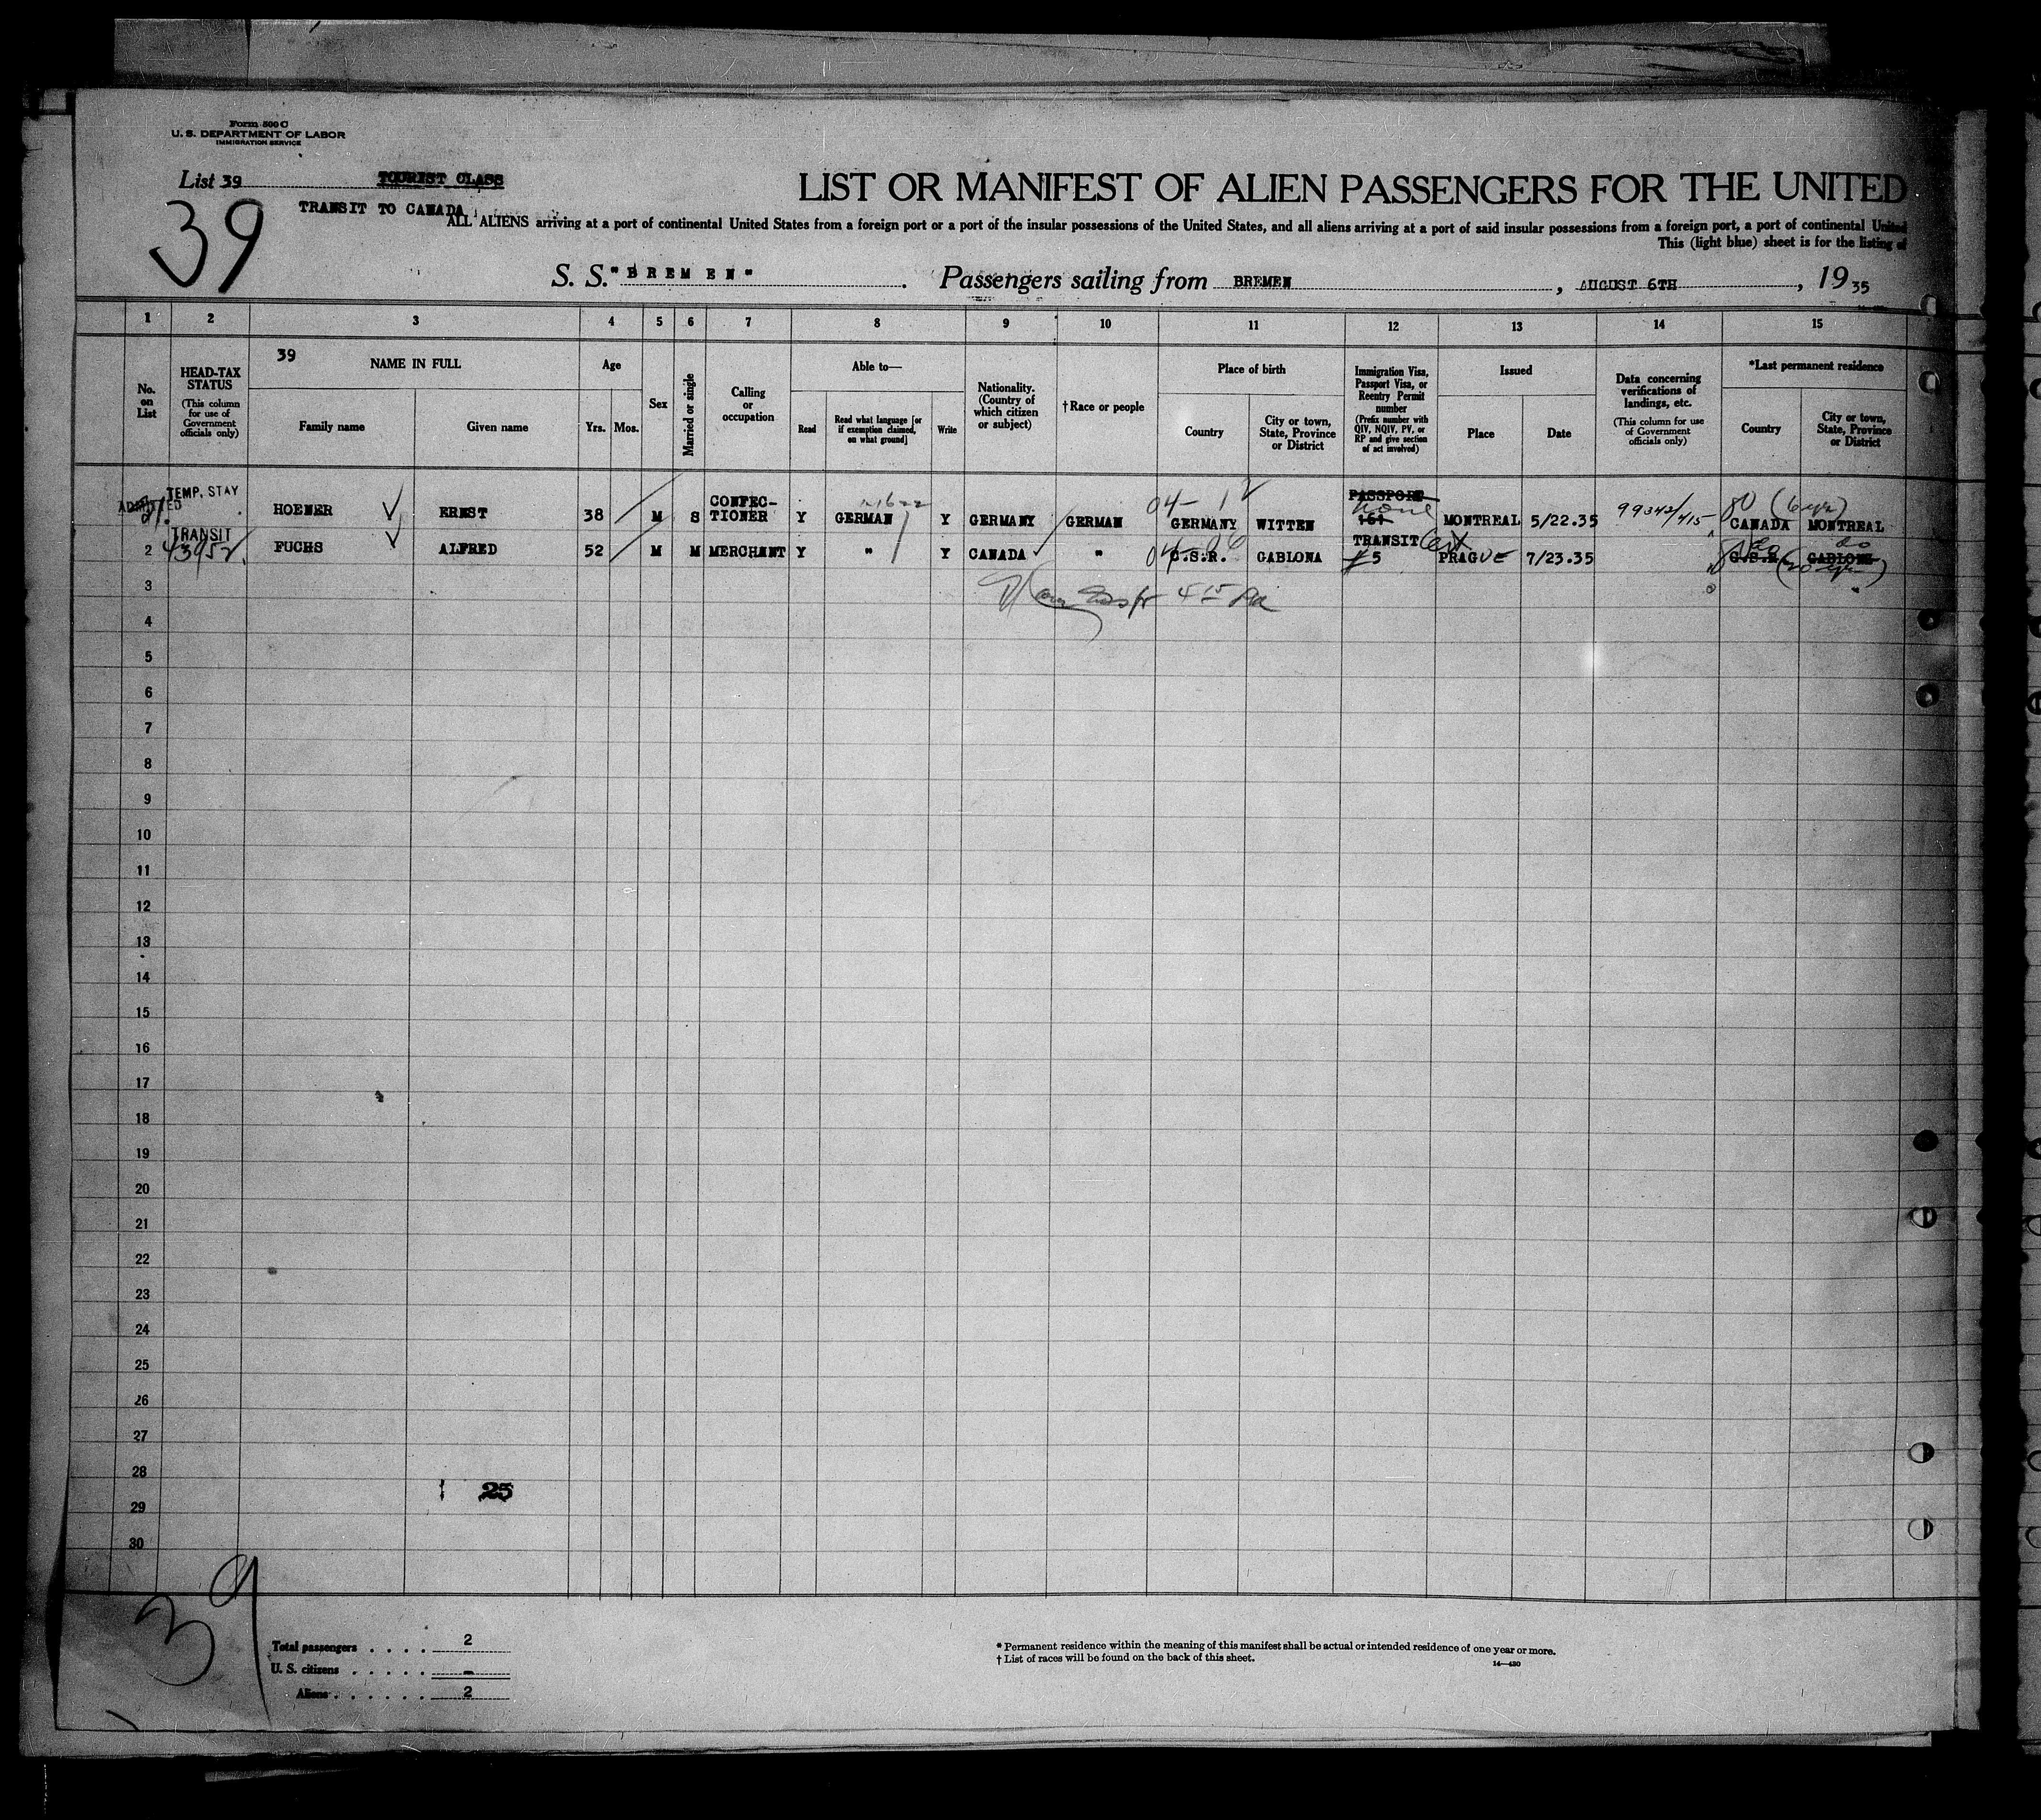 Form 500 C
U. S. DEPARTMENT OF LABOR
IMMIGRATION SERVICE
List 39 TOURIST CLASS
39
TRANSIT TO CANADA
LIST OR MANIFEST OF ALIEN PASSENGERS FOR THE UNITED
ALL ALIENS arriving at a port of continental United States from a foreign port or a port of the insular possessions of the United States, and all aliens arriving at a port of said insular possessions from a foreign port, a port of continental United
This (light blue) sheet is for the listing of
S. S. "BREMEN". Passengers sailing from BREMEN, AUGUST 6TH, 1935
1 2 3 4 5 6 7 8 9 10 11 12 13 14 15
No. on List
HEAD-TAX STATUS (This column for use of Government officials only)
39 NAME IN FULL
Family name Given name
Age
Yrs. Mos.
Sex
Married or single
Calling or occupation
Able to—
Read
Read what language [or if exemption claimed, on what ground]
Write
Nationality. (Country of which citizen or subject)
† Race or people
Place of birth
Country
City or town, State, Province or District
Immigration Visa, Passport Visa, or Reentry Permit number (Prefix number with QIV, NQIV, PV, or RP and give section of act involved)
Issued
Place Date
Data concerning verifications of landings, etc. (This column for use of Government officials only)
*Last permanent residence
Country
City or town, State, Province or District
ADMITTED TEMP. STAY HOENER ERNST 38 M S CONFEC-TIONER Y GERMAN Y GERMANY GERMAN 04- GERMANY WITTEN PASSPORT none 161 MONTREAL 5/22.35 99342/415 80 (6 yr) CANADA MONTREAL
2 TRANSIT 43952 FUCHS ALFRED 52 M M MERCHANT Y " Y CANADA " C.S.R. GABLONA TRANSIT Cert #5 PRAGUE 7/23.35 do C.S.R. do GABLONZ
3
4
5
6
7
8
9
10
11
12
13
14
15
16
17
18
19
20
21
22
23
24
25
26
27
28
25
29
30
39
Total passengers . . . . 2
U. S. citizens . . . . . -
Aliens . . . . . . 2
* Permanent residence within the meaning of this manifest shall be actual or intended residence of one year or more.
† List of races will be found on the back of this sheet.
14—430